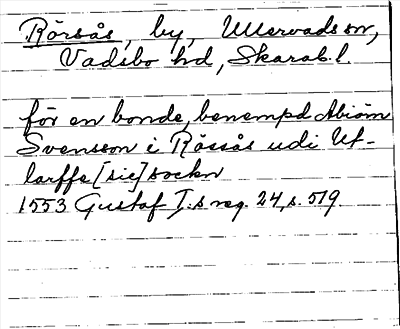 Rörsås, by, Ullervads sn,
Vadsbo hd, Skarab. l.
för en bonde, benempd Abiörn
Svensson i Rössås udi Ul-
larffe [sic] sockn
1553 Gustaf I:s reg. 24, s. 519.